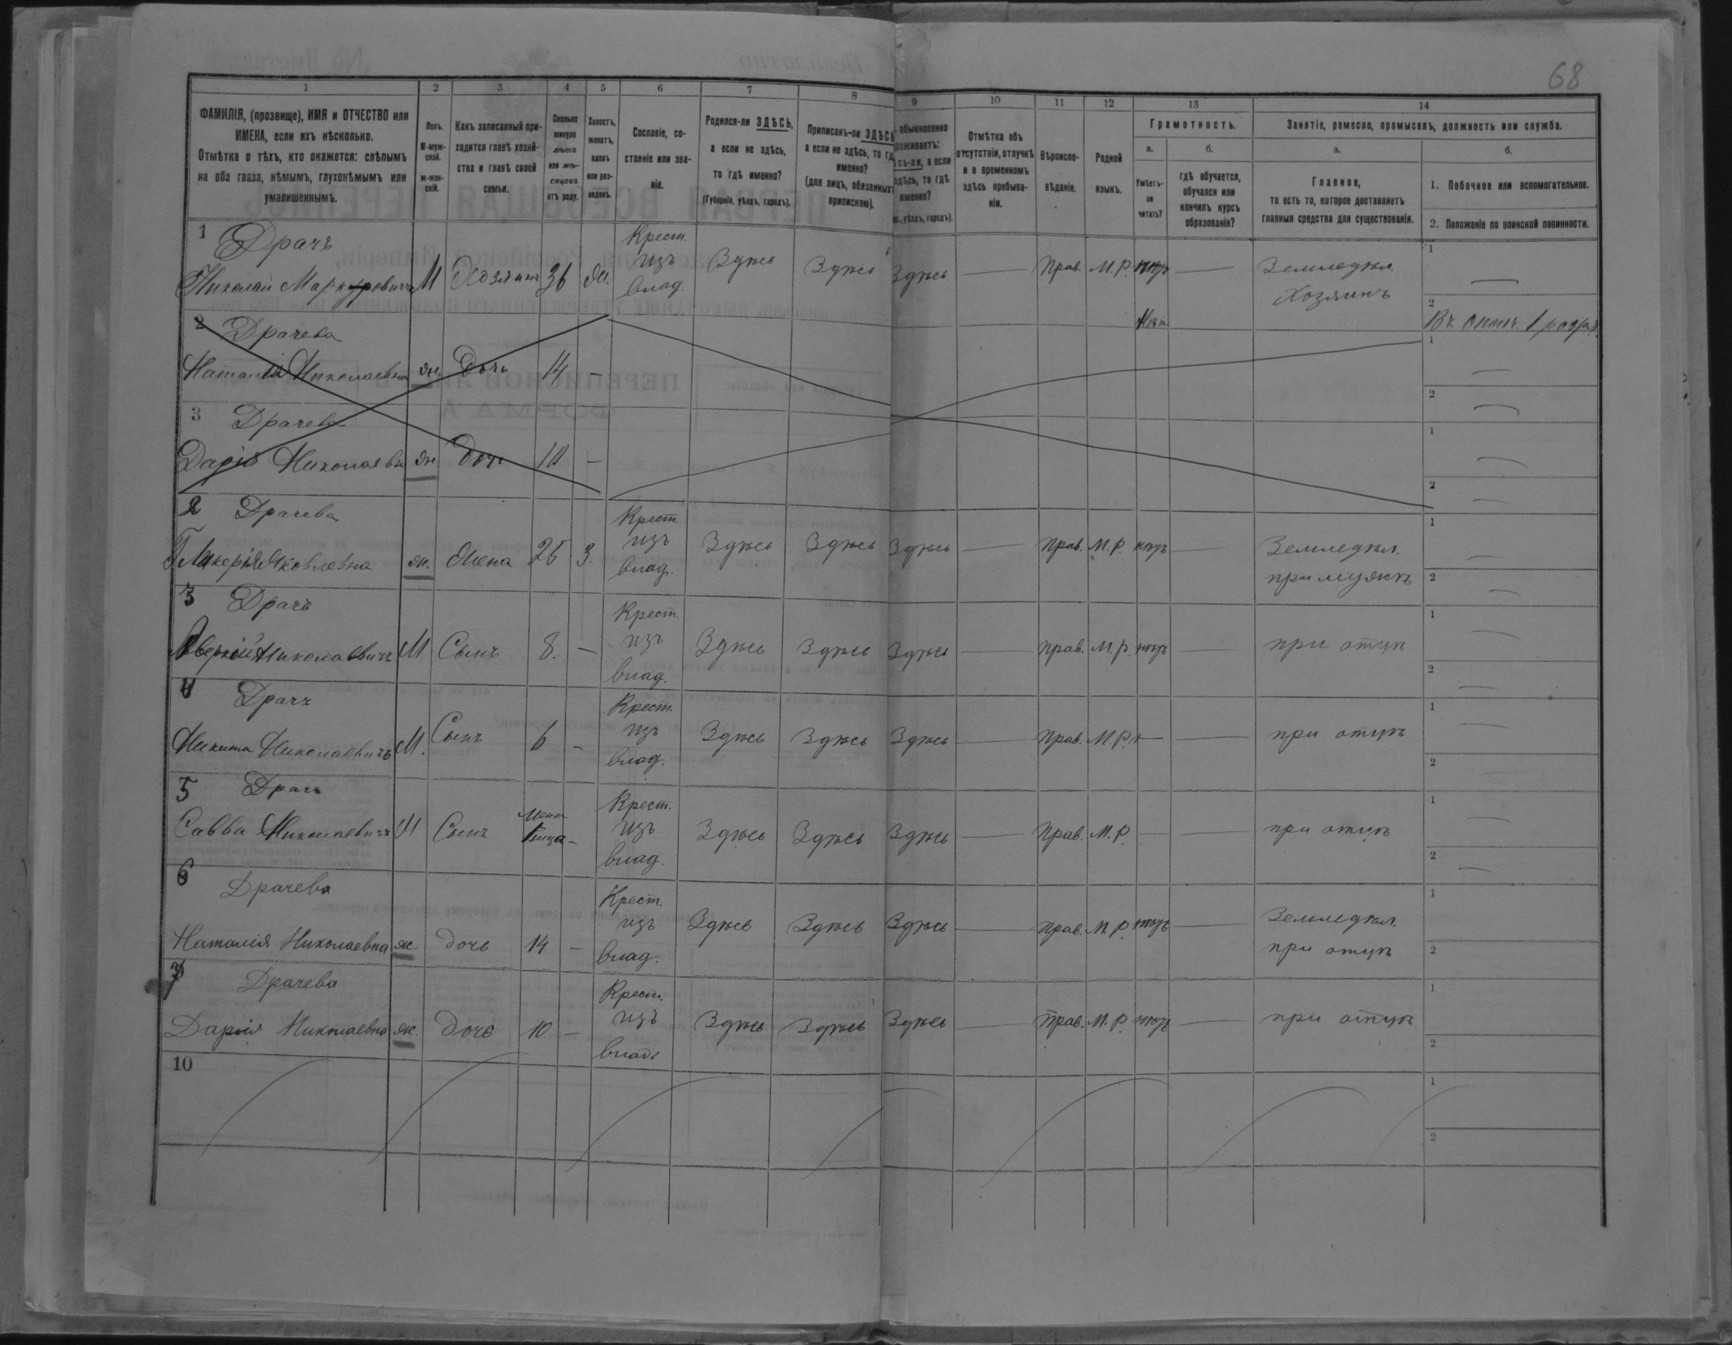 68
1 2 3 4 5 6 7 8 9 10 11 12 13 14
ФАМИЛІЯ, (прозвище), ИМЯ и ОТЧЕСТВО или
ИМЕНА, если ихъ нѣсколько.
Отмѣтка о тѣхъ, кто окажется: слѣпымъ
на оба глаза, нѣмымъ, глухонѣмымъ или
умалишеннымъ.
Полъ.
М-муж-
ской.
ж-жен-
скій.
Какъ записанный при-
ходится главѣ хозяй-
ства и главѣ своей
семьи.
Сколько
минуло
лѣтъ
или мѣ-
сяцевъ
отъ роду.
Холостъ,
женатъ,
вдовъ
или раз-
веденъ.
Сословіе, со-
стояніе или зва-
ніе.
Родился-ли ЗДѢСЬ,
а если не здѣсь,
то гдѣ именно?
(Губернія, уѣздъ, городъ).
Приписанъ-ли ЗДѢСЬ
а если не здѣсь, то гдѣ
именно?
(для лицъ, обязанныхъ
припискою).
обыкновенно
проживаетъ:
а если
здѣсь, то гдѣ
именно?
уѣздъ, городъ).
Отмѣтка объ
отсутствіи, отлучкѣ
и о временномъ
здѣсь пребыва-
ніи.
Вѣроиспо-
вѣданіе.
Родной
языкъ.
Грамотность.
а.
Умѣетъ-
ли
читать?
б.
гдѣ обучается,
обучался или
кончилъ курсъ
образованія?
Занятіе, ремесло, промыселъ, должность или служба.
а.
Главное,
то есть то, которое доставляетъ
главныя средства для существованія.
б.
1. Побочное или вспомогательное.
2. Положеніе по воинской повинности.
1 Драчъ
Николай М Хозяинъ 36 Ж.
Крест.
изъ
влад.
Здѣсь Здѣсь Здѣсь — Прав. М.Р. нѣтъ —
Земледѣл.
Хозяинъ
1 —
2
2 Драчева
Наталія Николаевна ж. Дочь 14 —
1 —
2 —
3 Драчева
Дарія Николаевна ж. Дочь 10 —
1 —
2 —
2 Драчева
Гликерія Яковлевна ж. Жена 3.
Крест.
изъ
влад.
Здѣсь Здѣсь Здѣсь — Прав. М.Р. нѣтъ —
Земледѣл.
при мужѣ
1 —
2 —
3 Драчъ
Аверкій Николаевичъ М Сынъ 8. —
Крест.
изъ
влад.
Здѣсь Здѣсь Здѣсь — Прав. М.Р. нѣтъ —
при отцѣ
1 —
2 —
4 Драчъ
Никита Николаевичъ М. Сынъ 6 —
Крест.
изъ
влад.
Здѣсь Здѣсь Здѣсь — Прав. М.Р. —
при отцѣ
1 —
2 —
5 Драчъ
Савва Николаевичъ М Сынъ —
Крест.
изъ
влад.
Здѣсь Здѣсь Здѣсь — Прав. М.Р. — —
при отцѣ
1 —
2 —
6 Драчева
Наталія Николаевна ж. Дочь 14 —
Крест.
изъ
влад.
Здѣсь Здѣсь Здѣсь — Прав. М.Р. нѣтъ —
Земледѣл.
при отцѣ
1
2
7 Драчева
Дарія Николаевна ж. Дочь 10 —
Крест.
изъ
влад.
Здѣсь Здѣсь Здѣсь — Прав. М.Р. нѣтъ —
при отцѣ
1
2
10
1
2